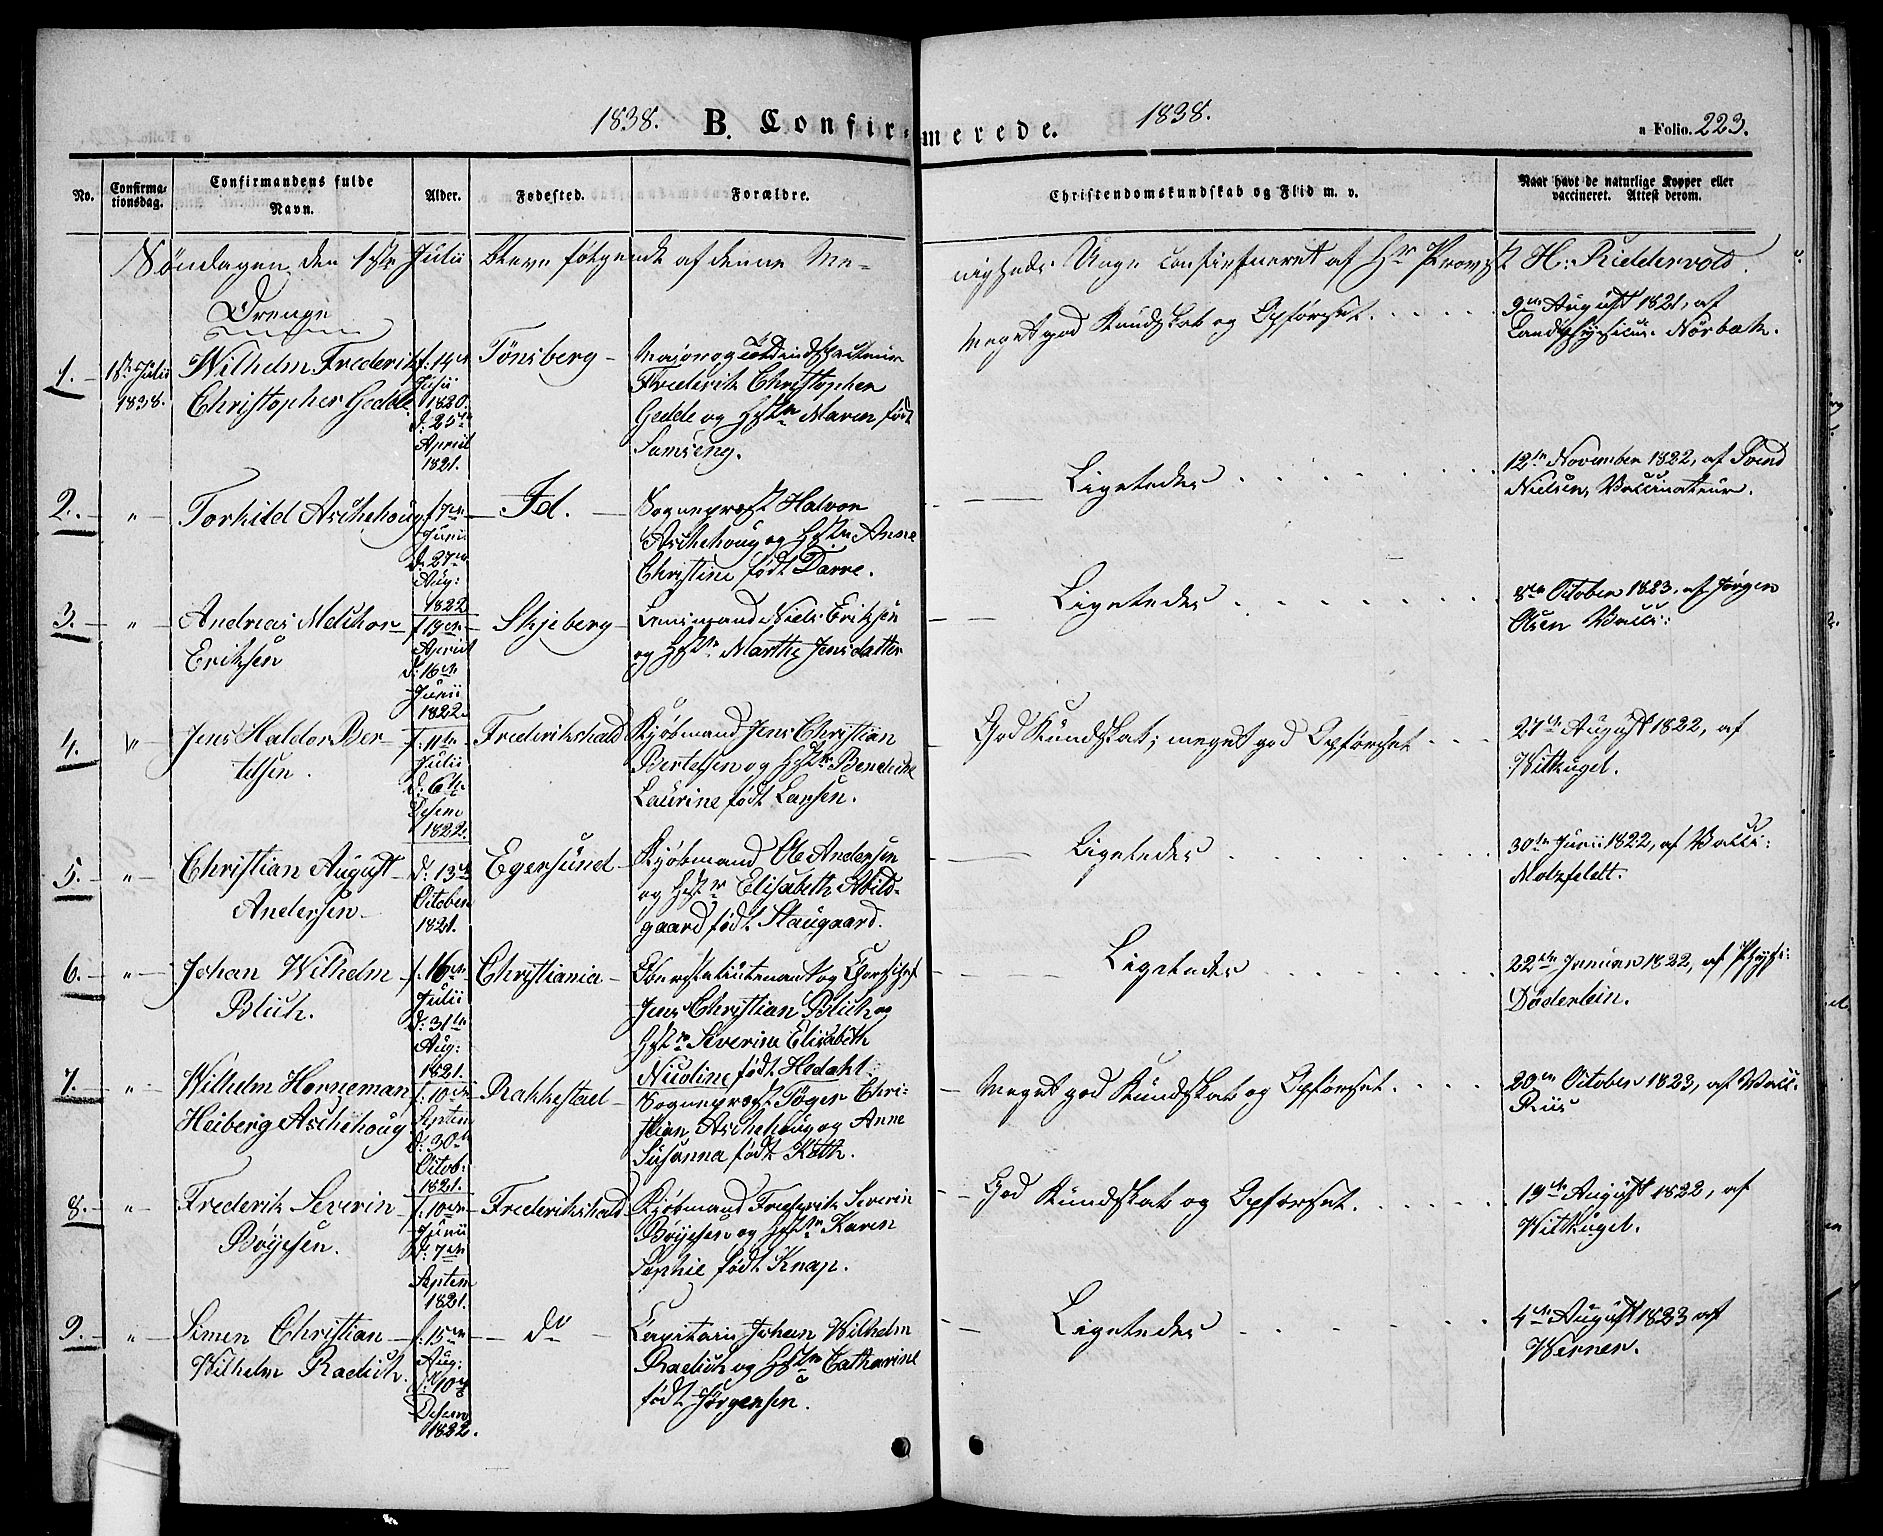 1838. B. Confirmerede. 1838. a Folio. 223.
No. Confirmationsdag. Confirmandens fulde Navn. Alder. Fødested. Forældre. Christendomskundskab og Flid m. v. Naar havt de naturlige Kopper eller vaccineret. Attest derom.
Søndagen den 1ste Julii bleve følgende af denne Menigheds Unge confirmeret af Hr Provst H: Riddervold.
Drenge
1. 1ste Julii 1838. Wilhelm Frederik Christopher Gedde
f: 14de
1820.
d: 25de April 1821.
Tønsberg
Major og
Frederik Christopher
Gedde og Hstr Maren født
Samsing.
Meget god Kundskab og Opførsel.
9de August 1821, af
Landphysicus Nørbech.
2. " Torkild Aschehoug
f 7de Junii
d: 27de Aug: 1822
Id.
Sognepræst Halvor
Aschehoug og Hstr Anne
Christine født Darre.
Ligeledes
12te November 1822, af Svend
Nielsen, Vaccinateur.
3. " Andreas Melchor Eriksen
f 19de April
d: 16de Junii 1822.
Skjeberg
Lensmand Niels Eriksen
og Hstr Marthe Jensdatter
Ligeledes
8de October 1823, af Jørgen
Olsen Vacci:
4. " Jens Haldor Bertelsen.
f: 11te Julii
d: 6te Desem 1822.
Frederikshald
Kjøbmand Jens Christian
Bertelsen og Hstr Benedicte
Laurine født Larsen.
God Kundskab; meget god Opførsel
27de August 1822, af
Wittugel.
5. " Christian August Andersen
d: 13de October 1821.
Egersund
Kjøbmand Ole Andersen
og Hstr Elisabeth Abildgaard
født Staugaard.
Ligeledes
30te Junii 1822, af Vacci:
Motzfeldt.
6. " Johan Wilhelm Blich.
f. 16de Julii
d: 31te Aug: 1821.
Christiania
Oberstlieutenant og
Jens Christian Blich og
Hstr Severine Elisabeth
Nicoline født Hedahl.
Ligeledes
22de Januar 1822, af Physi:
Døderlein.
7. " Wilhelm Horneman Heiberg Aschehoug
f. 10de Septem
d: 30te Octob: 1821.
Rakkestad
Sognepræst Tøger Christian
Aschehoug og Anne
Susanna født Koth.
Meget god Kundskab og Opførsel.
20de October 1823, af Vacci:
Riis
8. " Frederik Severin Bøyesen.
f. 10de Junii
d: 7de Septem 1821.
Frederikshald
Kjøbmand Frederik Severin
Bøyesen og Hstr Karen
Sophie født Knap.
God Kundskab og Opførsel.
19de August 1822, af
Wittugel.
9. " Simen Christian Wilhelm Radich.
f: 15de Aug:
d: 10de Desem 1822.
do
Capitain Johan Wilhelm
Radich og Hstr Catharine
født Jørgensen.
Ligeledes
4de August 1823 af
Werner.